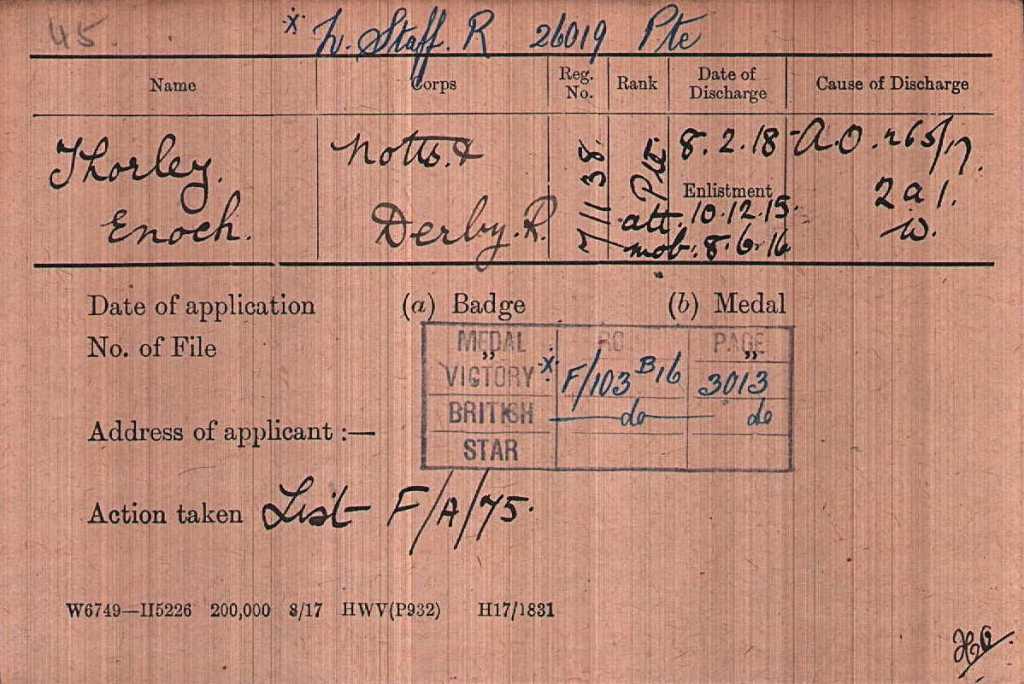 45.
* N. Staff. R 26019 Pte
Name Corps Reg. No. Rank Date of Discharge Cause of Discharge
Thorley, Enoch. Notts. & Derby. R. 71138. Pte 8.2.18 A.O. 265/17.
Enlistment 2a1.
att. 10.12.15. w.
mob. 8.6.16
Date of application (a) Badge (b) Medal
No. of File „ „
MEDAL RO PAGE
VICTORY * F/103 B16 3013
BRITISH do do
STAR
Address of applicant :—
Action taken List F/A/75.
W6749—H5226 200,000 8/17 HWV(P932) H17/1831